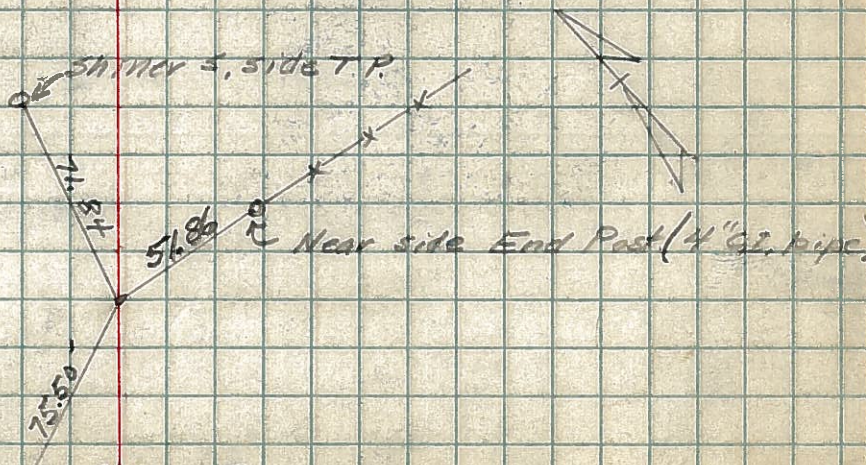 Shiner S. side T.P.
71.54
51.86
Near side End Post (4" G.I. pipe)
75.50